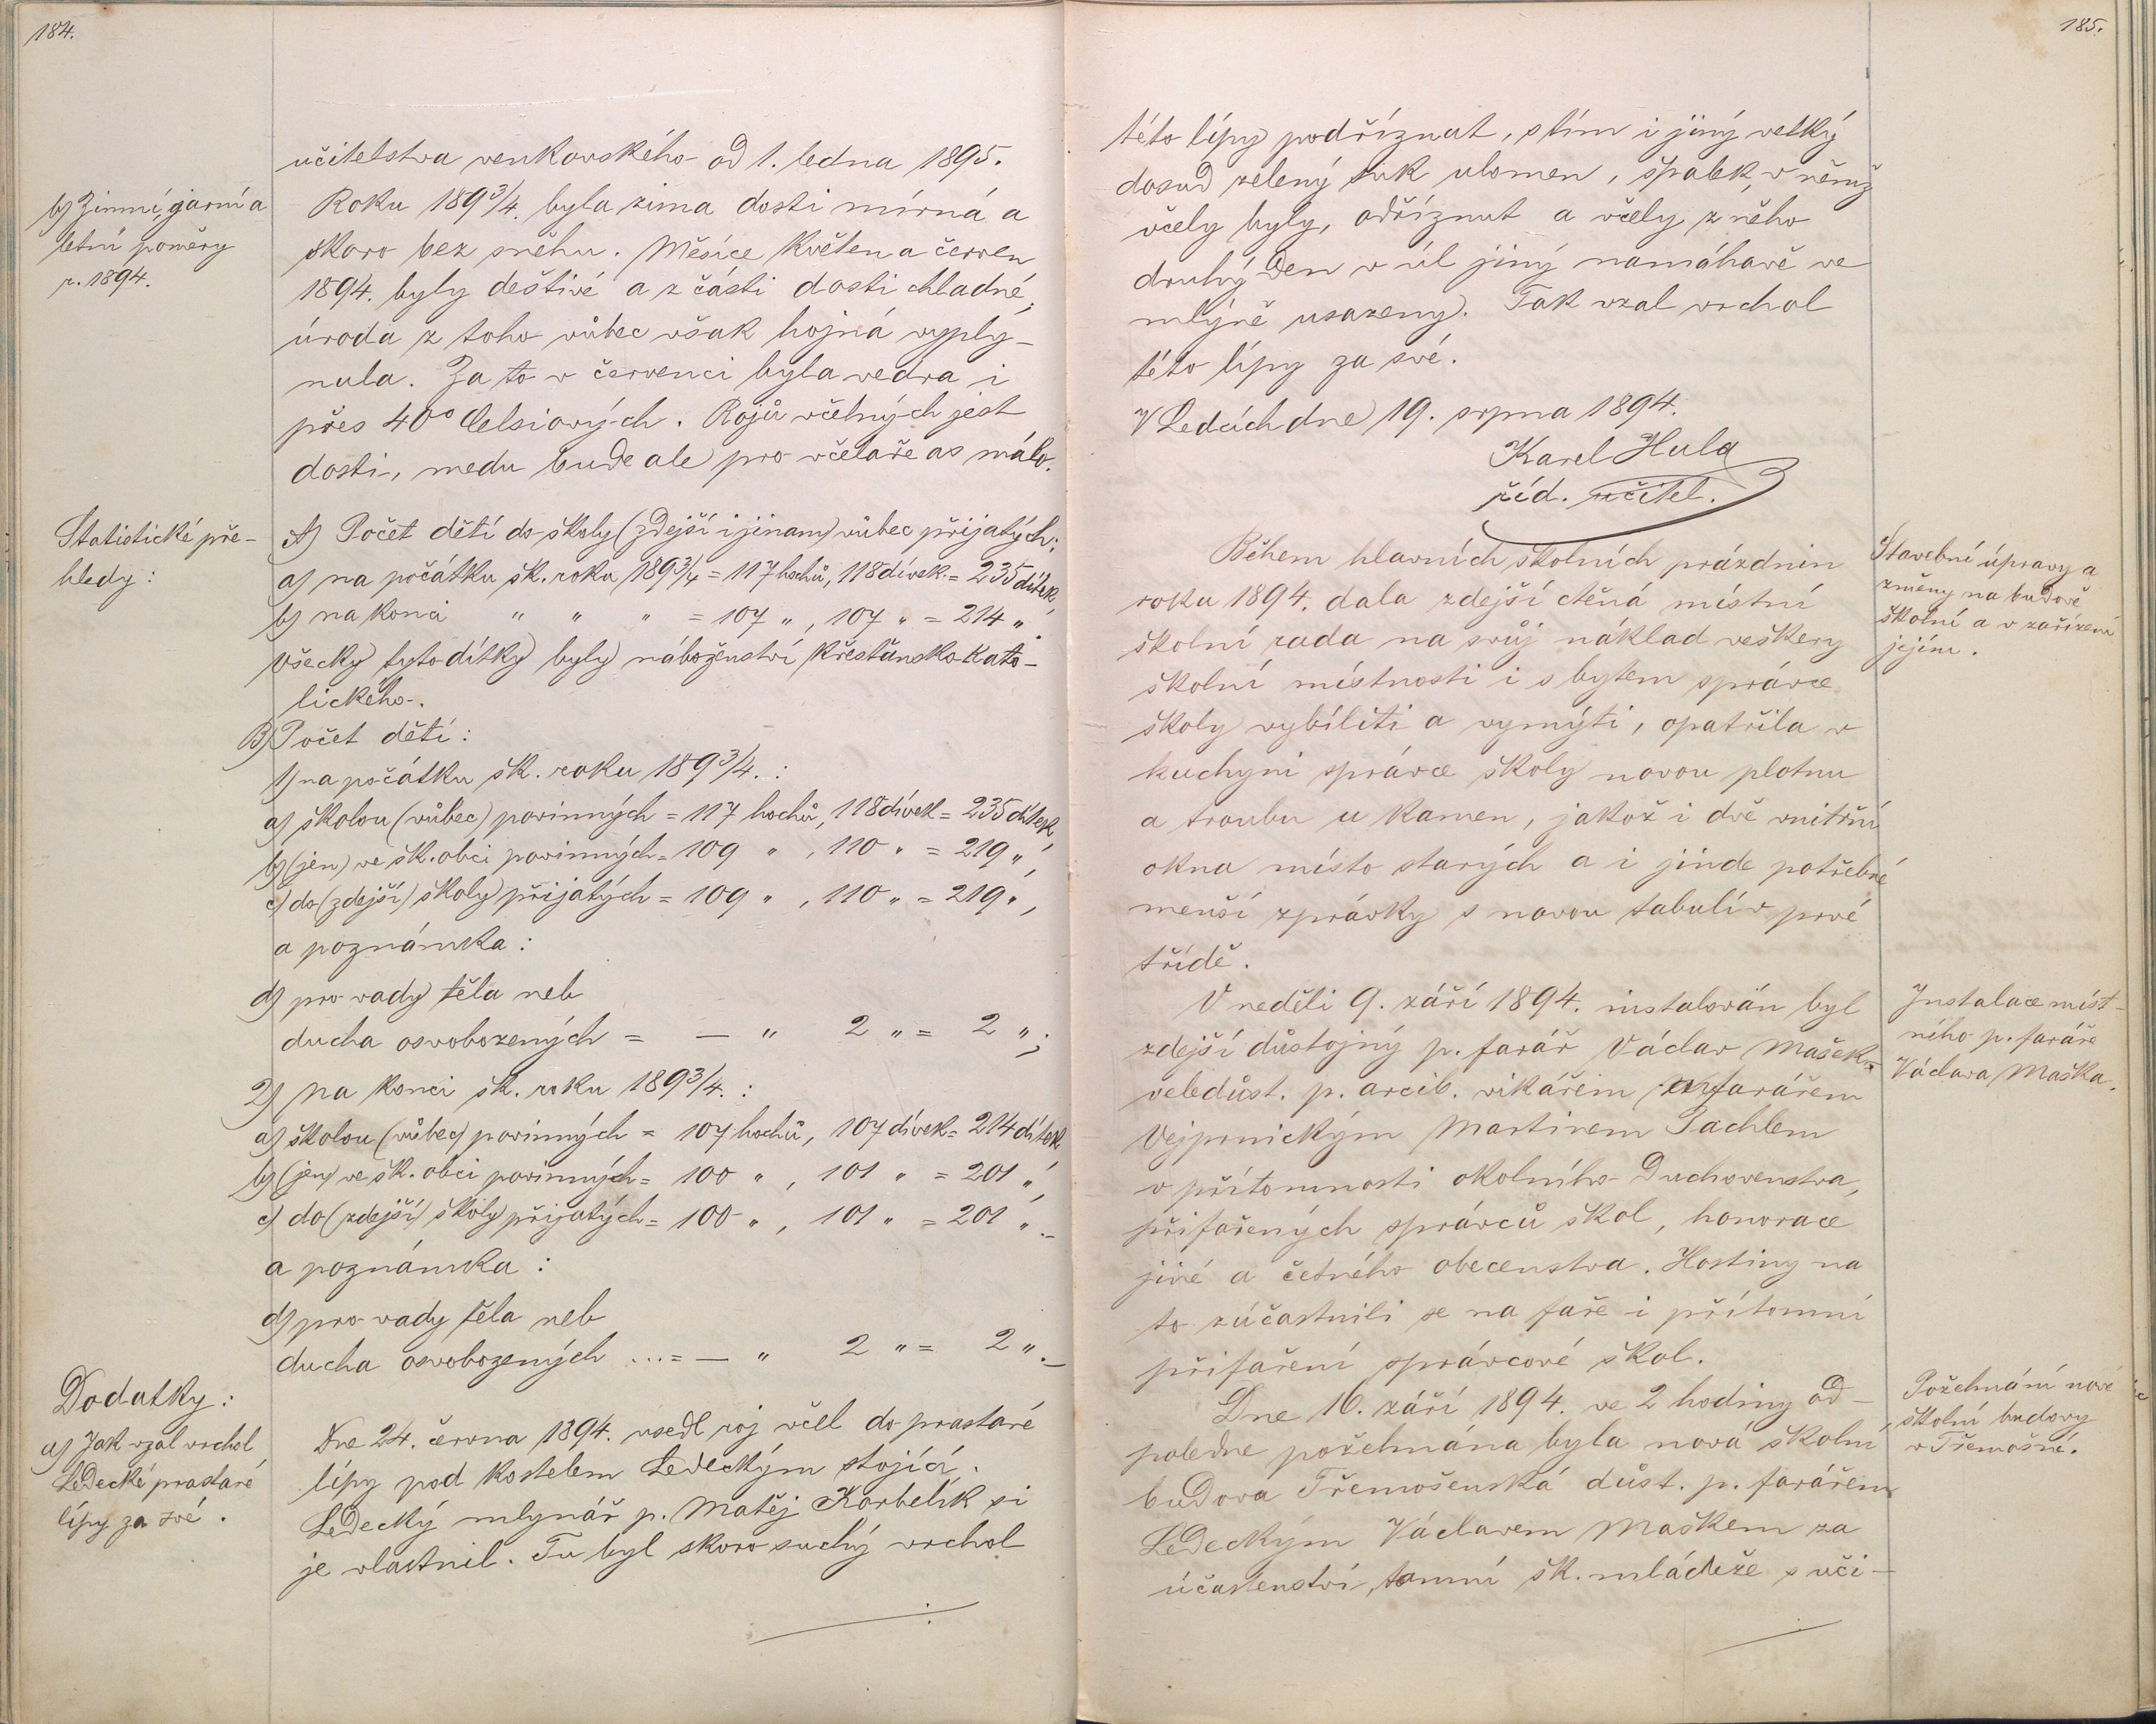 184.
učitelstva venkovského od 1. ledna 1895.
b) Zimní, jarní a
letní poměry
r. 1894.
Roku 189¾. byla zima dosti mírná a
skoro bez sněhu. Měsíce květen a červen
1894. byly deštivé a z části dosti chladné,
úroda z toho vůbec však hojná vyply-
nula. Za to v červenci byla vedra i
přes 40° Celsiových. Rojů včelných jest
dosti, medu bude ale pro včelaře as málo.
Statistické pře-
hledy:
A) Počet dětí do školy (zdejší i jinam) vůbec přijatých:
a) na počátku šk. roku 189¾ = 117 hochů, 118 dívek = 235 dítek,
b) na konci " " " = 107 ", 107 " = 214 ".
Všecky tyto dítky byly náboženství křesťansko-kato-
lického.
B) Počet dětí:
1) na počátku šk. roku 189¾. :
a) školou (vůbec) povinných = 117 hochů, 118 dívek = 235 dítek,
b) (jen) ve šk. obci povinných = 109 ", 110 " = 219 ",
c) do (zdejší) školy přijatých = 109 ", 110 " = 219 ",
a poznámka:
d) pro vady těla neb
ducha osvobozených = — " 2 " = 2 ";
2) na konci šk. roku 189¾. :
a) školou (vůbec) povinných = 107 hochů, 107 dívek = 214 dítek,
b) (jen) ve šk. obci povinných = 100 ", 101 " = 201 ",
c) do (zdejší) školy přijatých = 100 ", 101 " = 201 ".–
a poznámka:
d) pro vady těla neb
ducha osvobozených ... = — " 2 " = 2 ".–
Dodatky:
a) Jak vzal vrchol
Ledecké prastaré
lípy za své.
Dne 24. června 1894. usedl roj včel do prastaré
lípy pod kostelem Ledeckým stojící.
Ledecký mlynář p. Matěj Korbelík si
je vlastnil. Tu byl skoro suchý vrchol
185.
této lípy podříznut, s tím i jiný velký
dosud zelený suk ulomen, špalek, v němž
včely byly, odříznut a včely z něho
druhý den v úl jiný namáhavě ve
mlýně usazeny. Tak vzal vrchol
této lípy za své.
V Ledcích dne 19. srpna 1894.
Karel Hula
říd. učitel.
Během hlavních školních prázdnin
roku 1894. dala zdejší ctěná místní
školní rada na svůj náklad veškery
školní místnosti i s bytem správce
školy vybíliti a vymýti, opatřila v
kuchyni správce školy novou plotnu
a troubu u kamen, jakož i dvě vnitřní
okna místo starých a i jinde potřebné
menší zprávky s novou tabulí v prvé
třídě.
Stavební úpravy a
změny na budově
školní a v zařízení
jejím.
V neděli 9. září 1894. instalován byl
zdejší důstojný p. farář Václav Mašek
veledůst. p. arcib. vikářem farářem
Vejprnickým Martinem Tachlem
v přítomnosti okolního duchovenstva,
přifařených správců škol, honorace
jiné a četného obecenstva. Hostiny na
to zúčastnili se na faře i přítomní
přifaření správcové škol.
Instalace míst-
ního p. faráře
Václava Maška.
Dne 16. září 1894. ve 2 hodiny od-
poledne požehnána byla nová školní
budova Třemošenská důst. p. farářem
Ledeckým Václavem Maškem za
účastenství tamní šk. mládeže s uči-
Požehnání nové
školní budovy
v Třemošné.